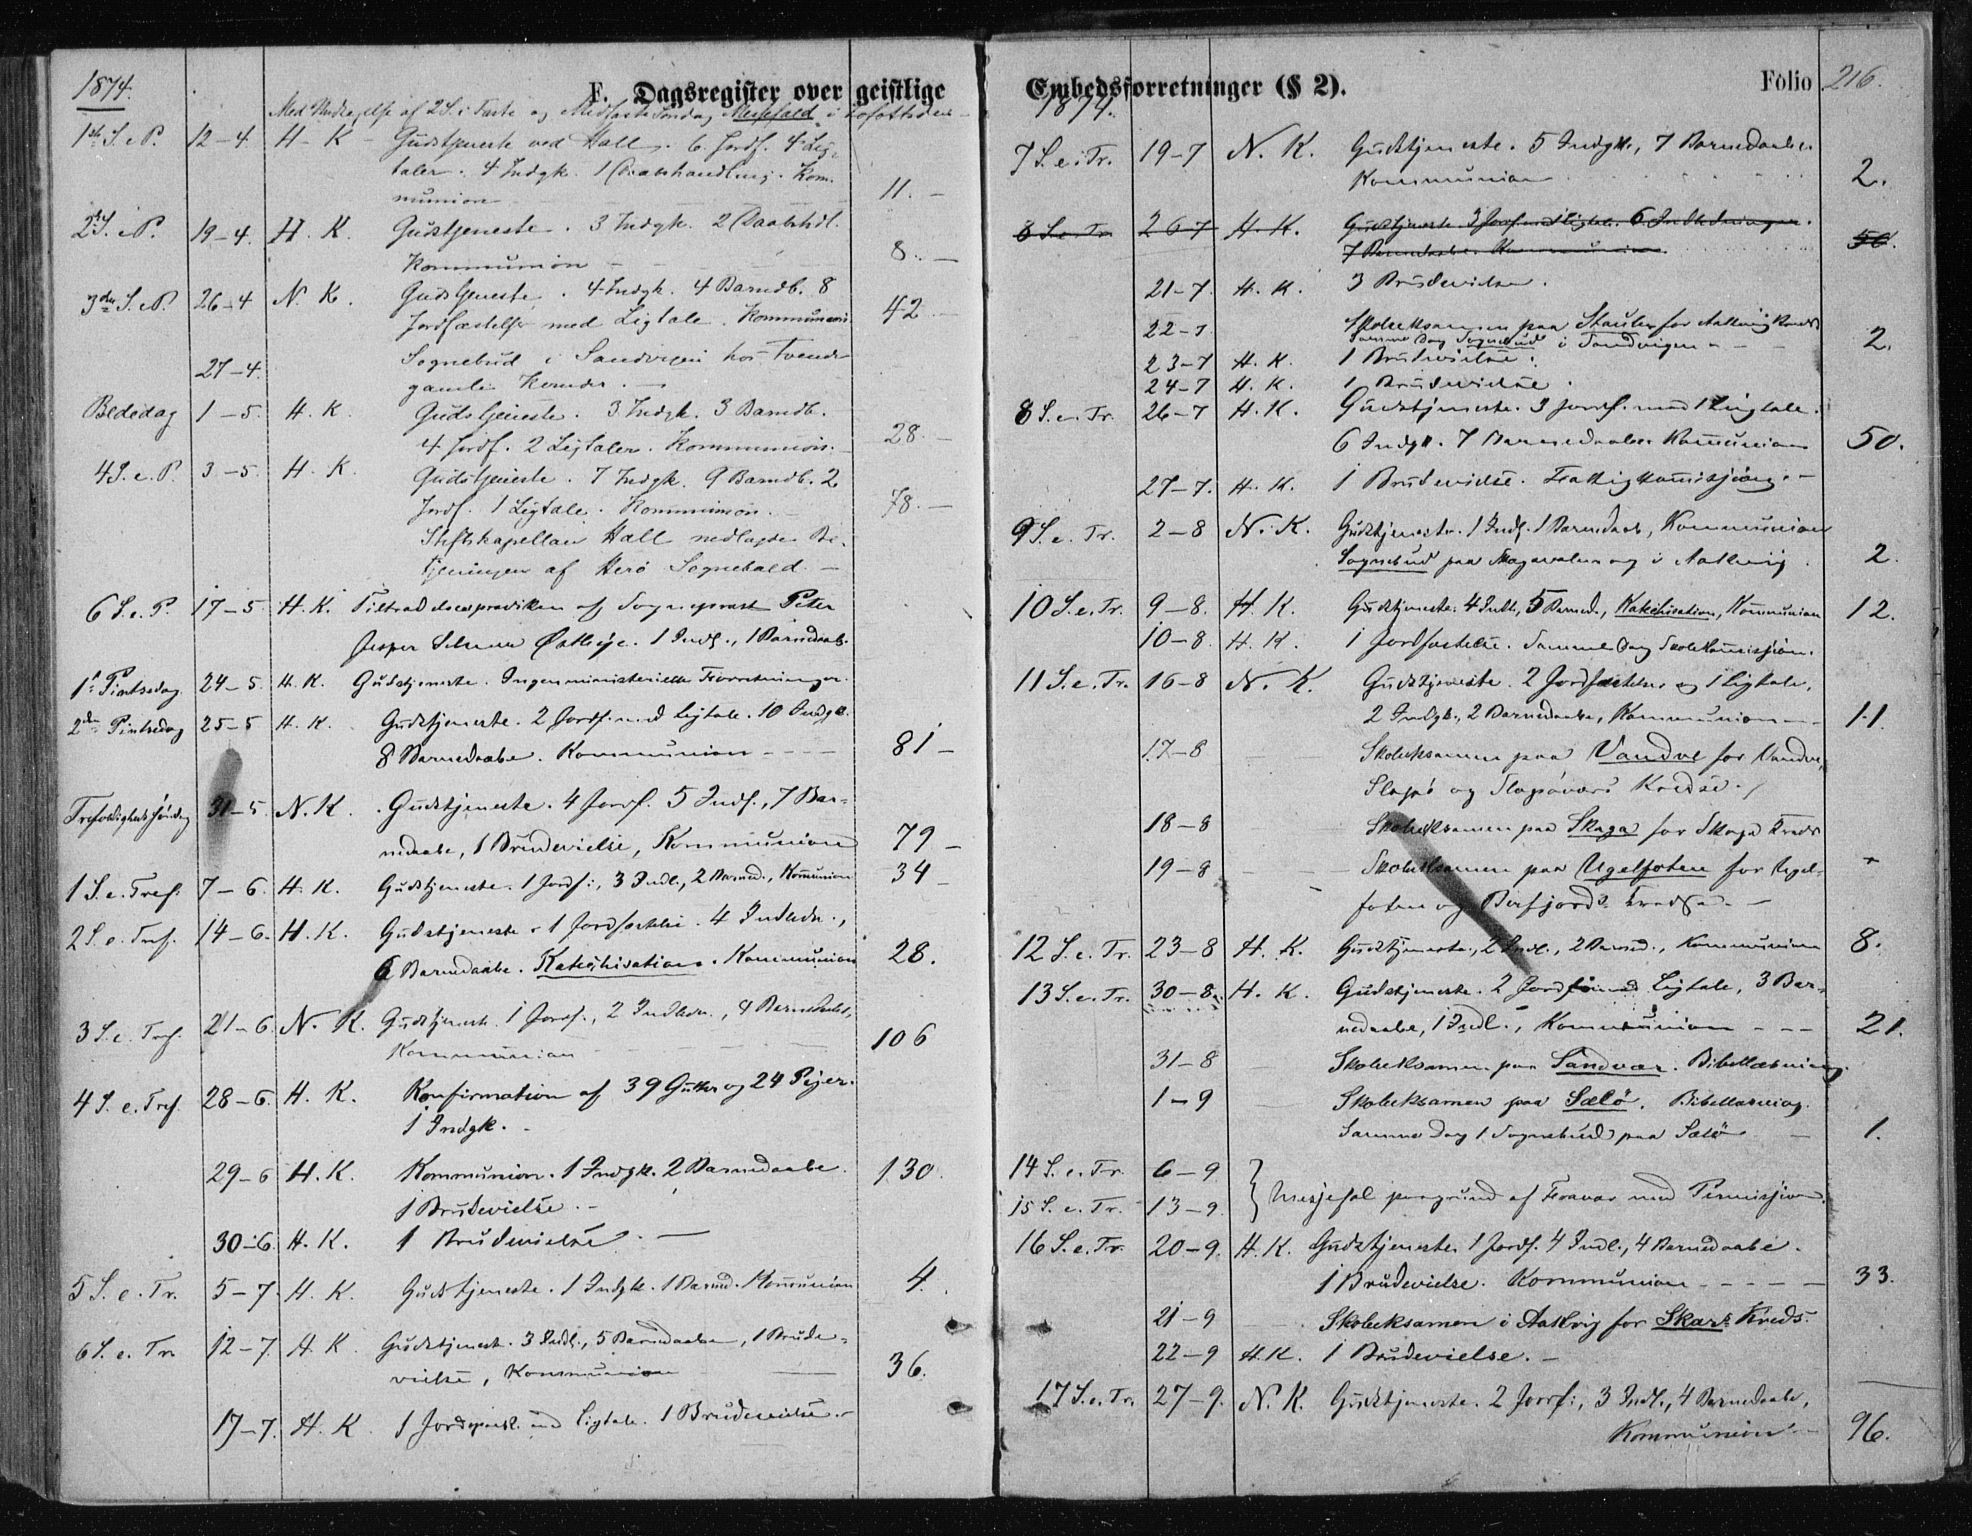 1874.
F. Dagsregister over geistlige
Med Undtagelse af 2 S. i Faste og Midfaste Søndag Messefald i Lofottiden
1ste S. e P. 12-4. H. K. Gudstjeneste ved Hall. 6 Jordf. 4 Lig-
taler. 4 Indgk. 1 Daabshandling. Kom-
munion 11.
2 S. e P. 19-4. H. K. Gudstjeneste. 3 Indgk. 2 Daabshdl.
Kommunion 8.
3die S. e P. 26-4 N. K. Gudstjeneste. 4 Indgk. 4 Barndb. 8
Jordfæstelser med Ligtale. Kommunion 42
27-4. Sognebud i Sandvigen hos tvende
gamle Koner.
Bededag 1-5. H. K. Gudstjeneste. 3 Indgk. 3 Barndb.
4 Jordf. 2 Ligtaler. Kommunion. 28.
4 S. e. P. 3-5. H. K. Gudstjeneste. 7 Indgk. 9 Barndb. 2
Jordf. 1 Ligtale. Kommunion. 78.
Stiftskapellan Hall nedlagde Be-
tjeningen af Herø Sognekald.
6 S. e. P. 17-5. H. K. Tiltrædelsesprædiken af Sogneprest Peter
Jesper Østbye. 1 Indl., 1 Barnedaab.
1ste Pintsedag 24-5. H. K. Gudstjeneste. Ingen ministerielle Forretninger.
2den Pintsedag 25-5 H. K. Gudstjeneste. 2 Jordf. med Ligtale. 10 Indgk.
8 Barnedaabe. Kommunion 81
Trefoldighedssøndag 31-5. N. K. Gudstjeneste. 4 Jordf. 5 Indl., 7 Bar-
nedaabe, 1 Brudevielse, Kommunion 79
1 S. e. Tref. 7-6. H. K. Gudstjeneste. 1 Jordf., 3 Indl., 2 Barned., Kommunion 34
2 S. e. Tref. 14-6. H. K. Gudstjeneste. 1 Jordfæstelse. 4 Indledn.,
6 Barnedaabe. Katechisation. Kommunion 28.
3 S. e. Tref. 21-6 N. K. Gudstjeneste. 1 Jordf., 2 Indledn., 4 Barnedaabe,
Kommunion 106
4 S. e. Tref. 28-6. H. K. Konfirmation af 39 Gutter og 24 Piger.
1 Indgk.
29-6 H. K. Kommunion. 1 Indgk. 2 Barnedaabe. 130.
1 Brudevielse.
30-6. H. K. 1 Brudevielse.
5 S. e. Tr. 5-7. H. K. Gudstjeneste. 1 Indgk. 1 Barned. Kommunion 4.
6 S. e. Tr. 12-7. H. K. Gudstjenest. 3 Indl., 5 Barnedaabe, 1 Brude-
vielse, Kommunion 36.
17-7. H. K. 1 Jordpaak. med Ligtale. 1 Brudevielse.
Embedsforretninger (§ 2).
Folio 216.
1874.
7 S. e. Tr. 19-7 N. K. Gudstjeneste. 5 Indgk., 7 Barnedaabe
Kommunion 2.
8 S. e. Tr. 26-7 H. K. Gudstjeneste. 3 Jordf. med Ligtale. 6 Indledninger.
7 Barnedaabe. Kommunion 50.
21-7. H. K. 3 Brudevielser.
22-7 Skoleeksamen paa Stauler for Aakvig Kreds
Samme Dag Sognebud i Sandvigen 2.
23-7 H. K. 1 Brudevielse.
24-7 H. K. 1 Brudevielse.
8 S. e. Tr. 26-7 H. K. Gudstjeneste. 3 Jordf. med 1 Ligtale.
6 Indgk. 7 Barnedaabe Kommunion 50.
27-7. H. K. 1 Brudevielse. Fattigkommission.
9 S. e. Tr. 2-8 N. K. Gudstjeneste. 1 Indl. 1 Barnedaab, Kommunion
Sognebud paa og i Aakvig. 2.
10 S. e. Tr. 9-8. H. K. Gudstjeneste. 4 Indl., 5 Barned., Katechisation, Kommunion 12.
10-8. H. K. 1 Jordfæstelse. Samme Dag Skolekommission.
11 S. e. Tr. 16-8 N. K. Gudstjeneste. 2 Jordfæstelser og 1 Ligtale,
2 Indgk., 2 Barnedaabe, Kommunion 11.
17-8 Skoleeksamen paa Vandve for Vandve,
Slapø og Slapøvær Kredse.
18-8 Skoleeksamen paa Skaga for Skaga Kreds
19-8 Skoleeksamen paa Ugelfoten for Ugel-
foten og Kredse.
12 S. e. Tr. 23-8 H. K. Gudstjeneste, 2 Indl., 2 Barned., Kommunion 8.
13 S. e. Tr. 30-8. H. K. Gudstjeneste. 2 Jordf. med Ligtale, 3 Bar-
nedaabe, 1 Indl., Kommunion 21.
31-8 Skoleeksamen paa Sandvær. Bibellæsning.
1-9 Skoleeksamen paa Sælø. Bibellæsning.
Samme Dag 1 Sognebud paa Sælø 1.
14 S. e. Tr. 6-9
15 S. e. Tr. 13-9. } Messefal paagrund af Fravær med Permission.
16 S. e. Tr. 20-9. H. K. Gudstjeneste 1 Jordf. 4 Indl., 4 Barnedaabe.
1 Brudevielse. Kommunion 33.
21-9 Skoleeksamen i Aakvig for Skars Kreds.
22-9 H. K. 1 Brudevielse.
17 S. e. Tr. 27-9. N. K. Gudstjeneste. 2 Jordf., 3 Indl., 4 Barnedaabe,
Kommunion 96.